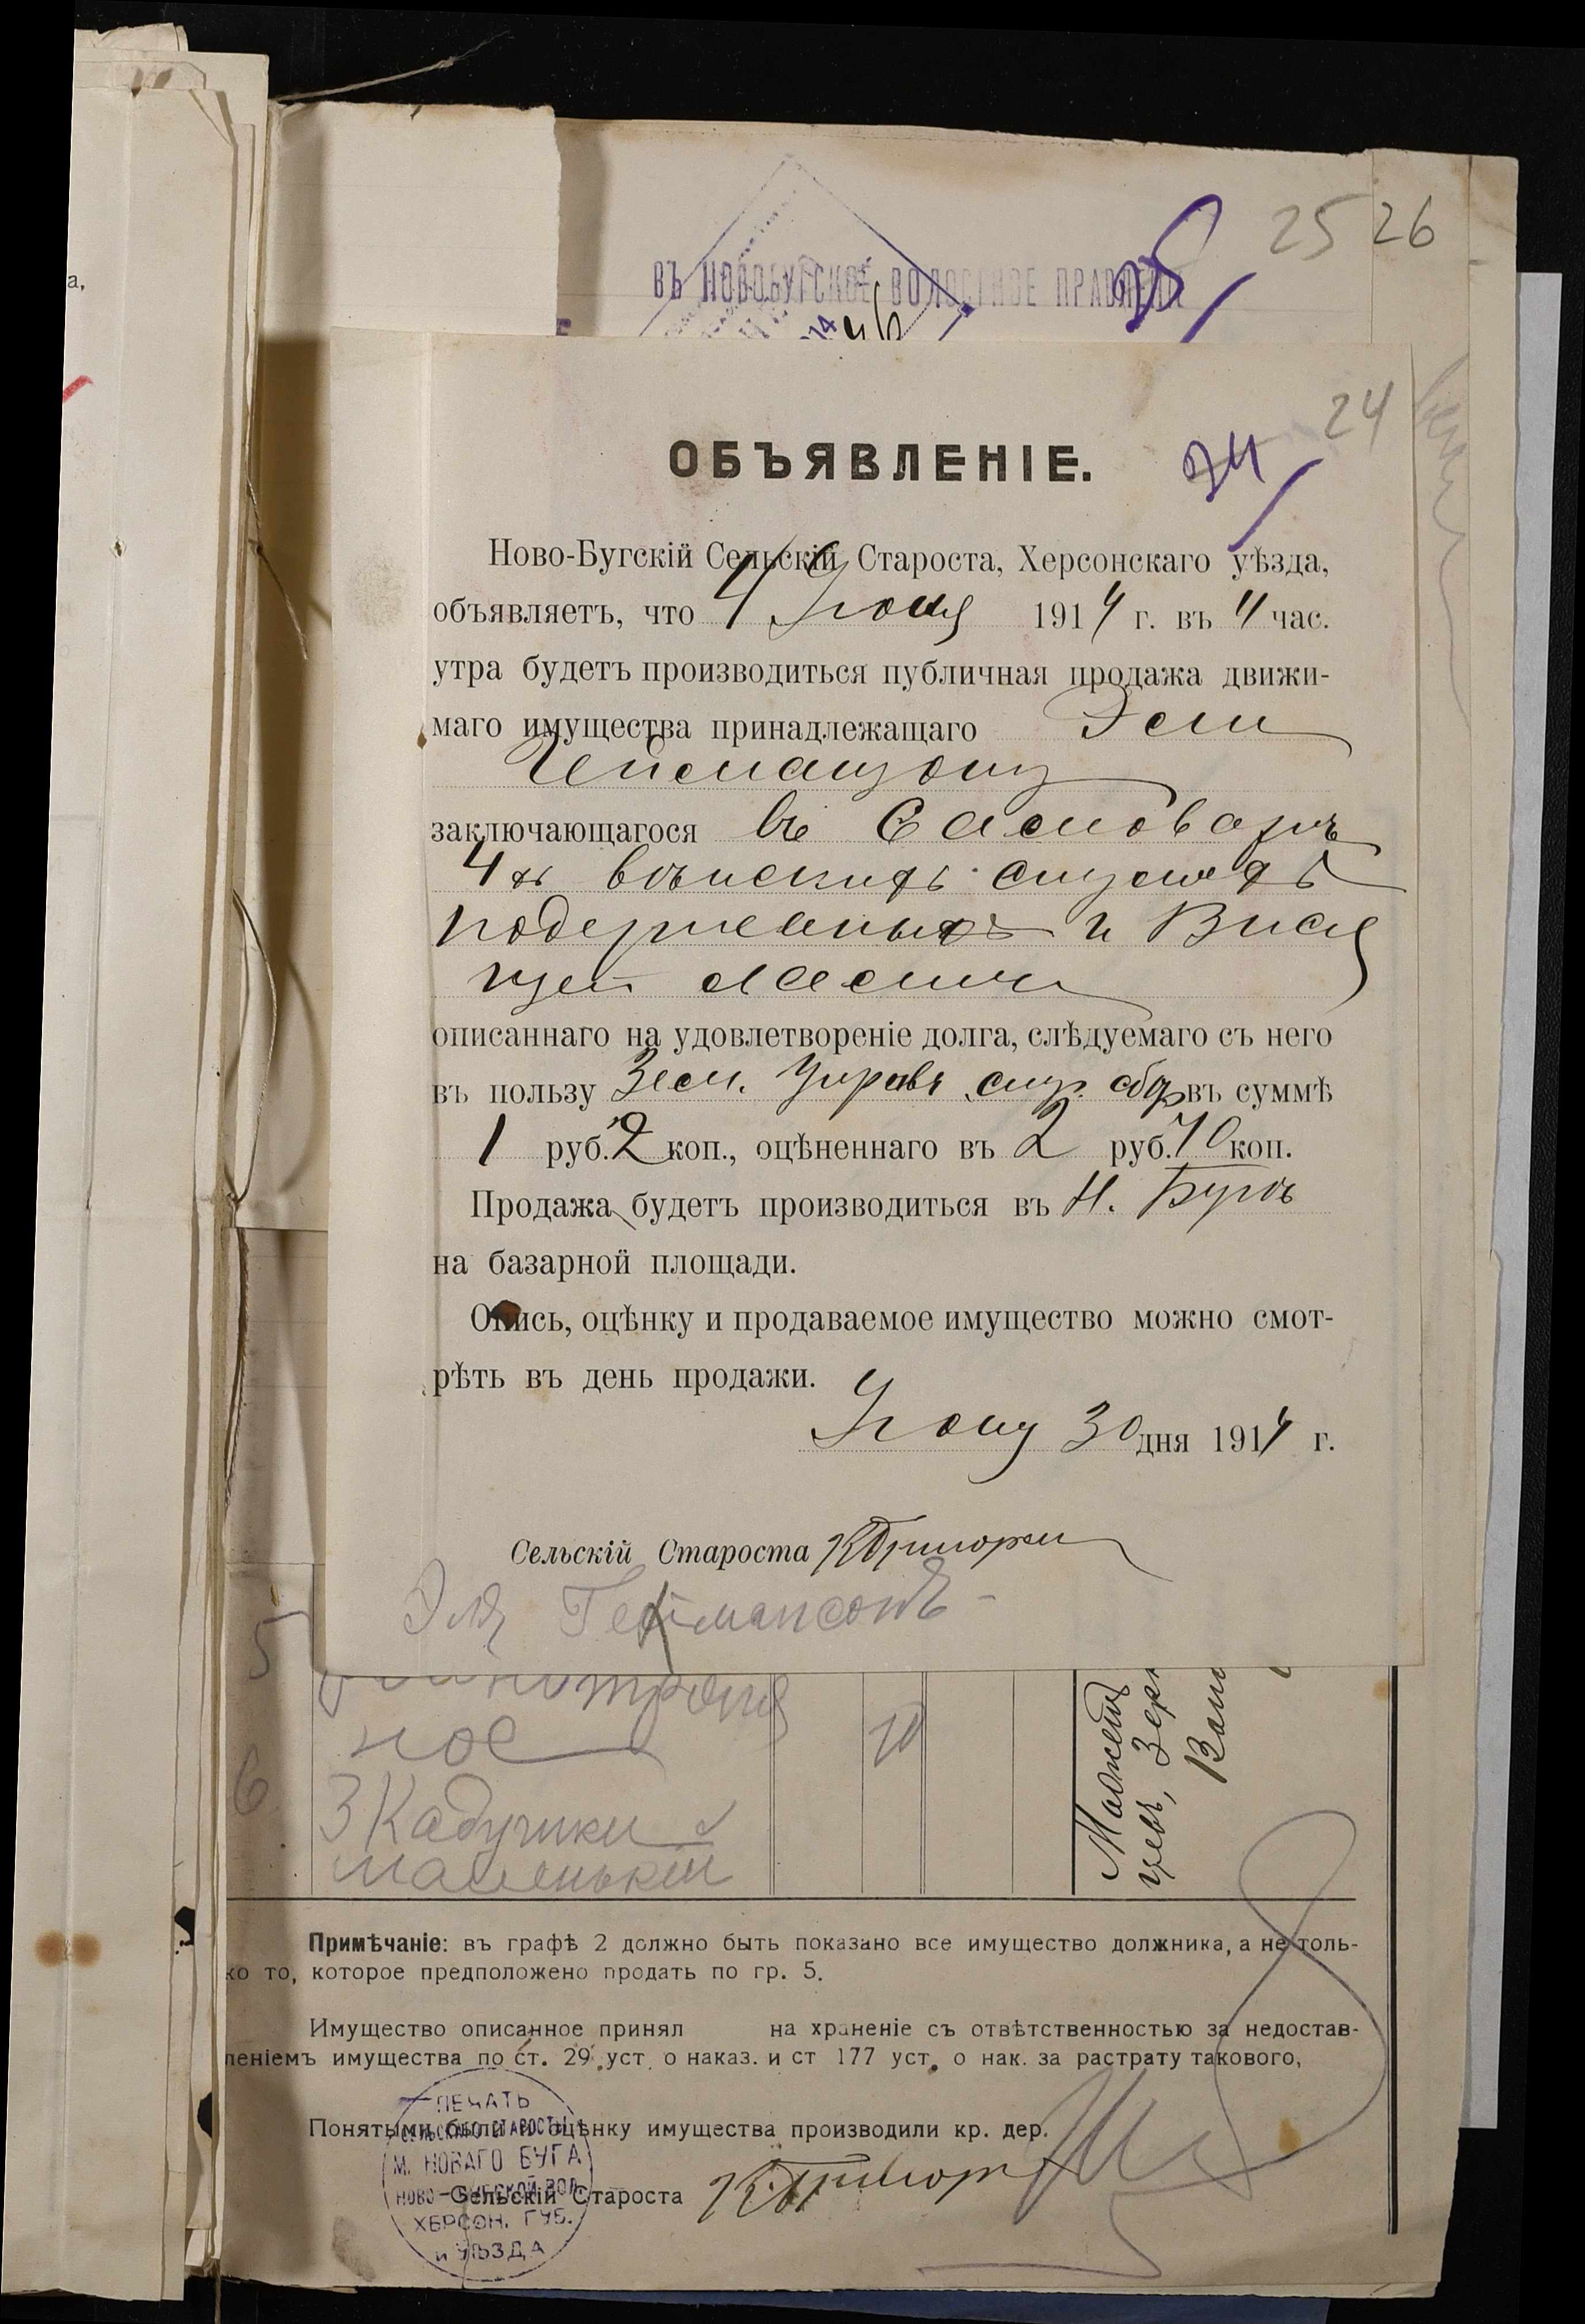 а,
25 26
ВЪ НОВОБУГСКОЕ ВОЛОСТНОЕ ПРАВЛЕНІЕ
25
24
ОБЪЯВЛЕНІЕ.
24
Ново-Бугскій Сельскій Староста, Херсонскаго уѣзда,
объявляетъ, что 1914 г. въ 4 час.
утра будетъ производиться публичная продажа движи-
маго имущества принадлежащаго
заключающагося въ Самоваръ
4хъ вѣнскихъ стульевъ
подержаныхъ и Вися
щей лампи
описаннаго на удовлетвореніе долга, слѣдуемаго съ него
въ пользу Зем. Управы въ суммѣ
1 руб. 2 коп., оцѣненнаго въ 2 руб. 70 коп.
Продажа будетъ производиться въ Н. Бугѣ
на базарной площади.
Опись, оцѣнку и продаваемое имущество можно смот-
рѣть въ день продажи.
30 дня 1914 г.
Сельскій Староста
Эля Геймансонъ
5
ное 10
6 3 Кадушки
маленькіи
Примѣчаніе: въ графѣ 2 должно быть показано все имущество должника, а не толь-
ко то, которое предположено продать по гр. 5.
Имущество описанное принял на храненіе съ отвѣтственностью за недостав-
леніемъ имущества по ст. 29 уст. о наказ. и ст 177 уст. о нак. за растрату такового,
Понятыми были и оцѣнку имущества производили кр. дер.
Сельскій Староста
ПЕЧАТЬ
СЕЛЬСКАГО СТАРОСТЫ
М. НОВАГО БУГА
НОВО-БУГСКОЙ ВОЛ.
ХЕРСОН. ГУБ.
и УѢЗДА